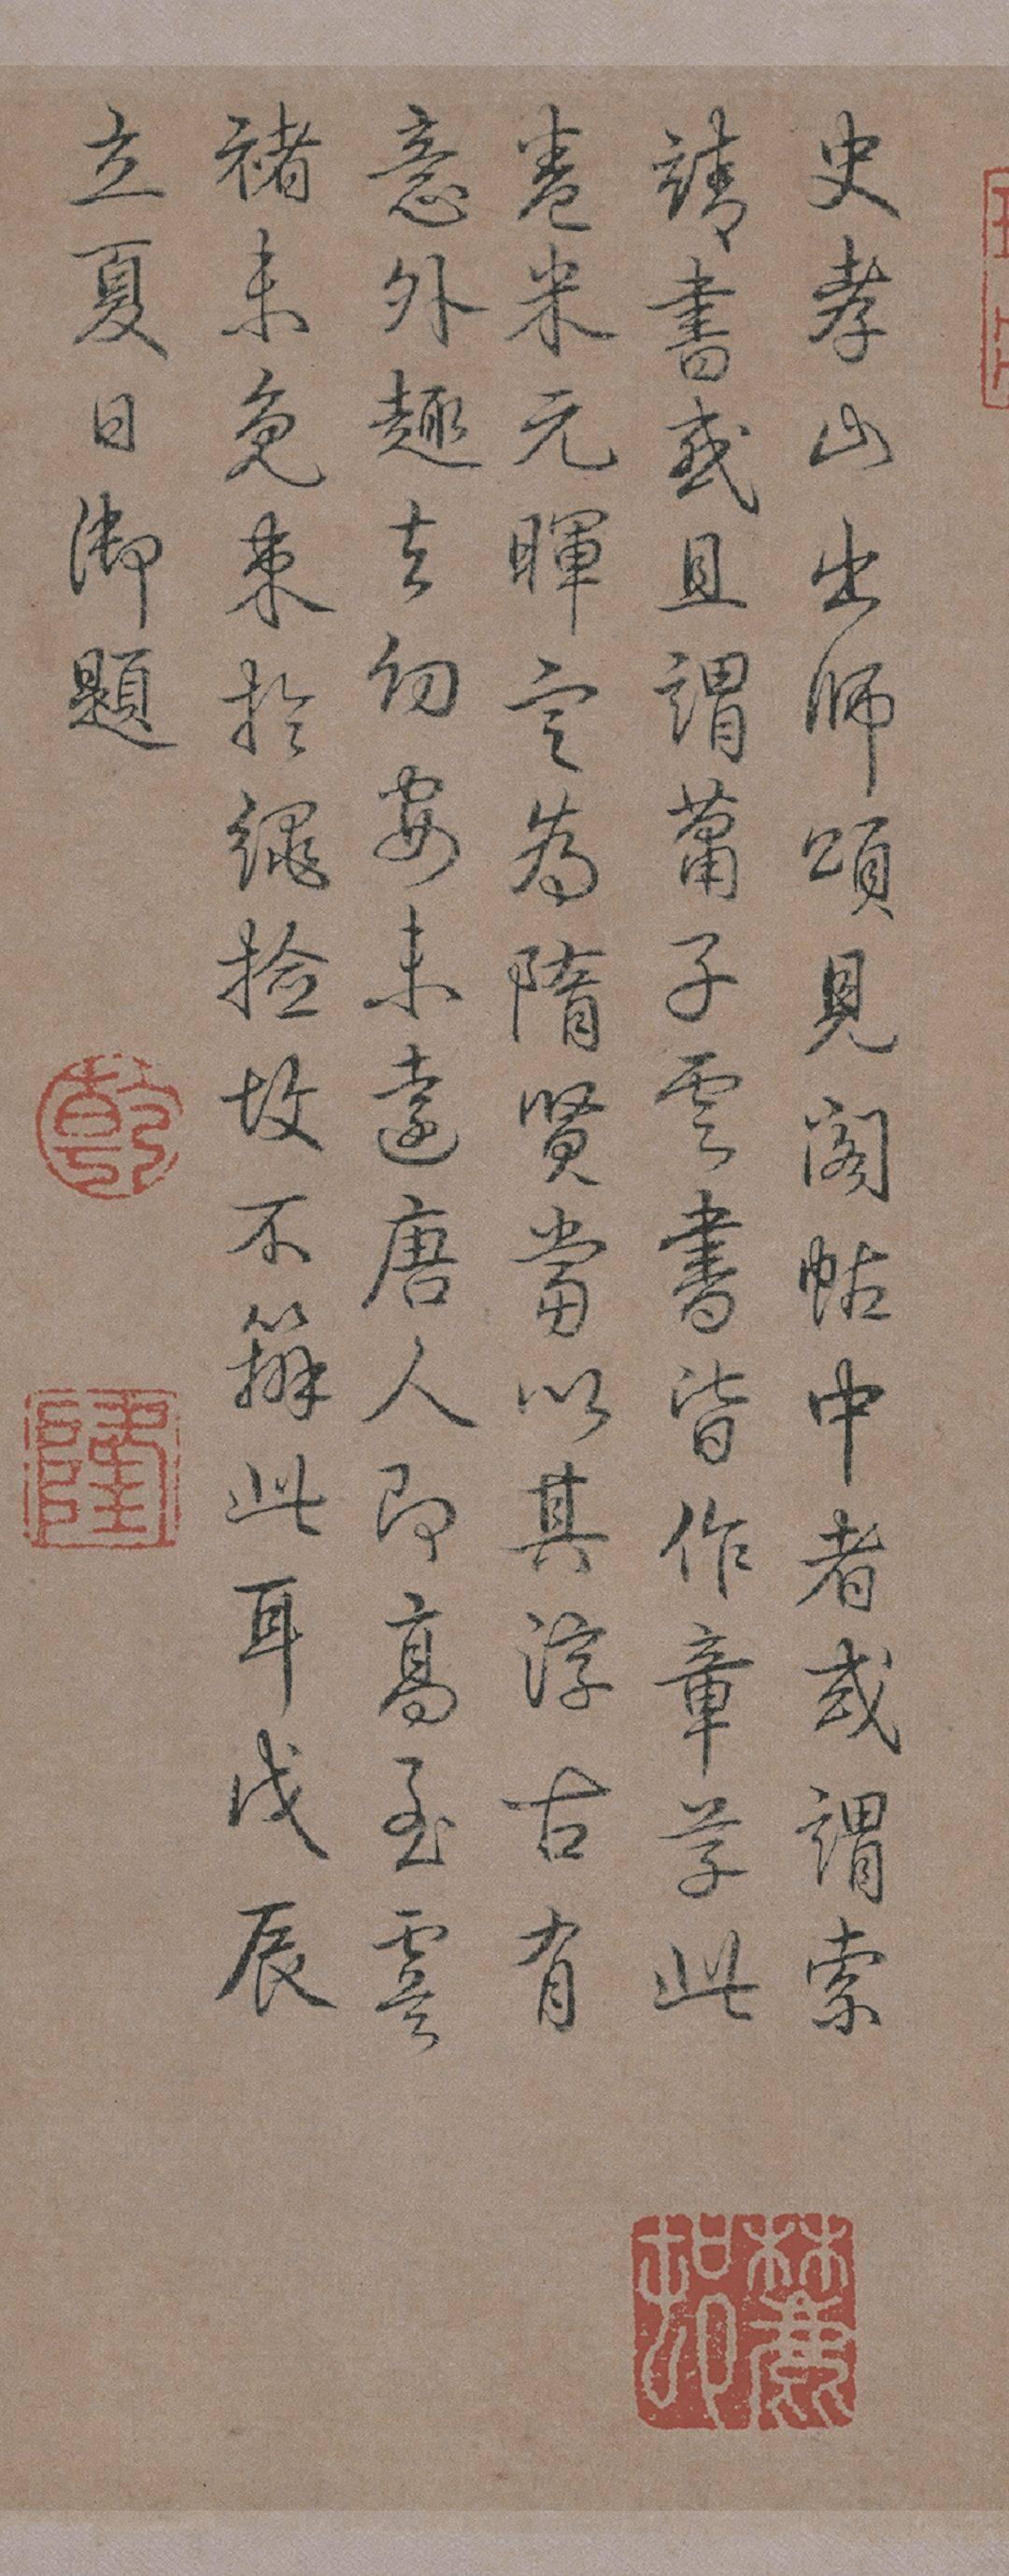 史孝山出師頌見閣帖中者或謂索
靖書或且謂蕭子雲書皆作章草此
卷米元暉定為隋賢當以其淳古有
意外趣去幼安未遠唐人即高至虞
褚未免束於繩撿故不辨此耳戊辰
立夏日御題
乾
隆